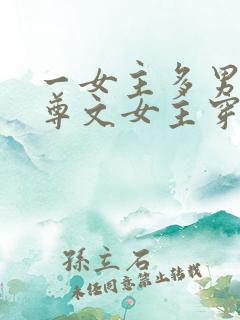 一女主多男
尊文女主穿
孫立石
未经同意禁止转载